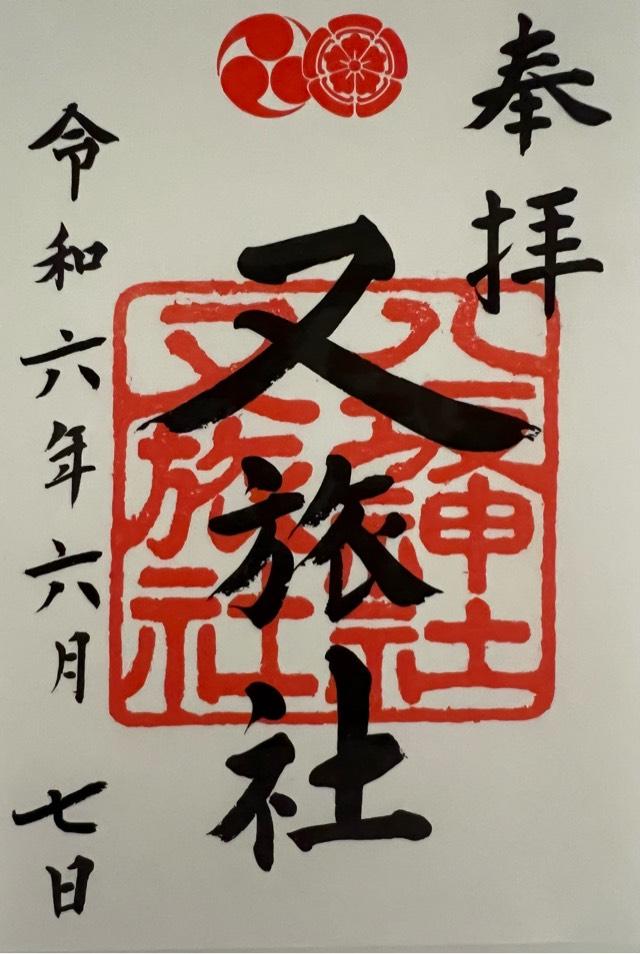 奉拝
八坂神社
又旅社
又旅社
令和六年六月七日